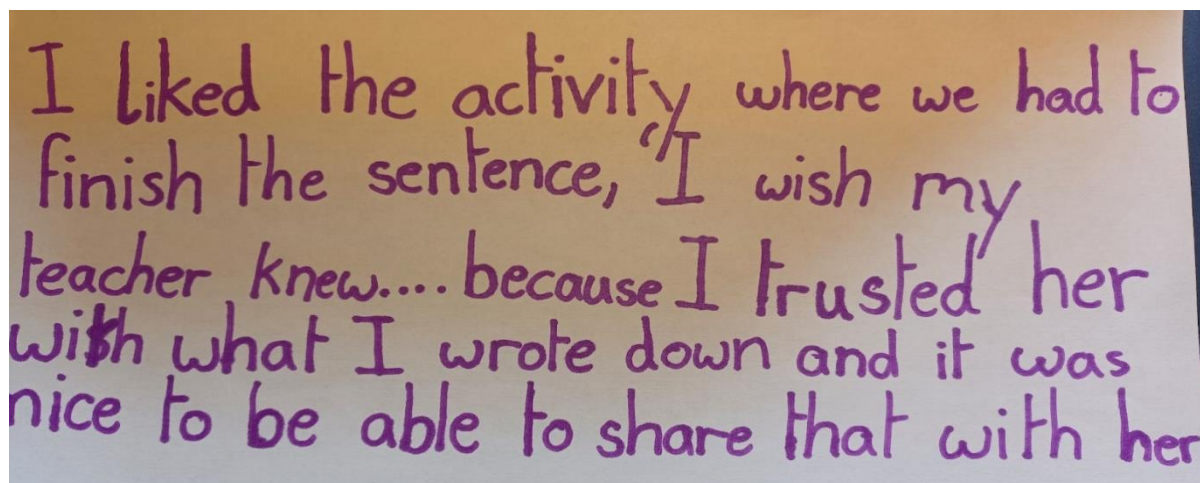 I liked the activity where we had to
finish the sentence, "I wish my
teacher knew.... because I trusted her
with what I wrote down and it was
nice to be able to share that with her